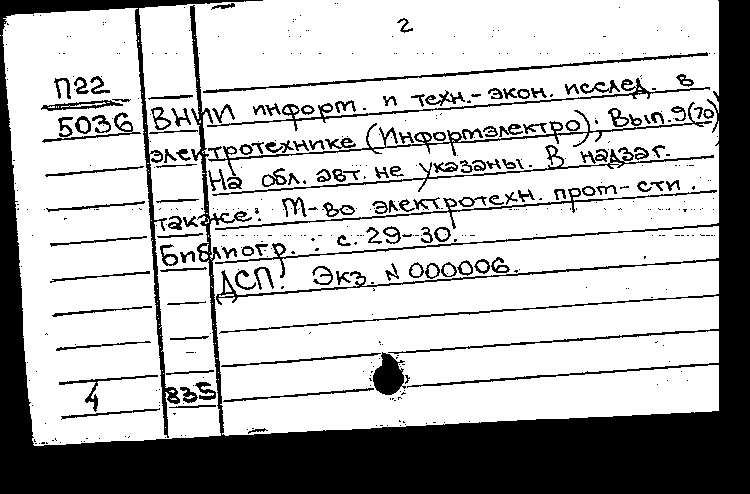 2
П22
5036 ВНИИ информ. и техн.-экон. исслед. в
электротехнике (Информэлектро); Вып. 9(70)
На обл. авт. не указаны. В надзаг.
также: М-во электротехн. пром-сти.
Библиогр.: с. 29-30.
ДСП. Экз. N 000006.
4 835